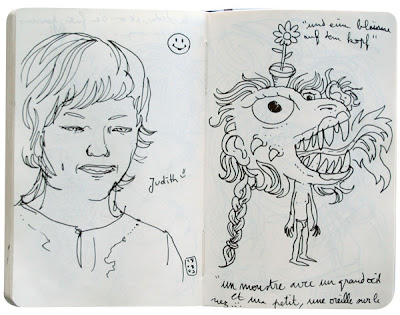 Judith
"und eine blaume
auf dem kopf"
"un monstre avec un grand œil
et un petit, une oreille sur le
nez...